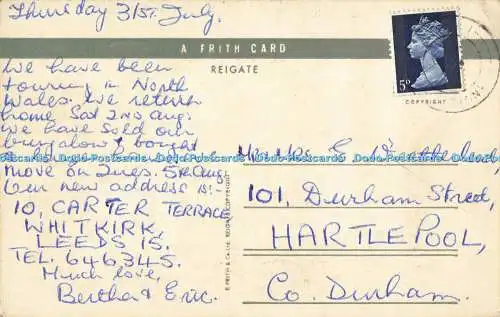 Thursday 31st. July.
A FRITH CARD
REIGATE
5D
COPYRIGHT
We have been
touring in North
Wales. We return
home Sat 2nd Aug.
We have sold our
bungalow & bought
move on Tues. 5th Aug.
Our new address is:-
10, CARTER TERRACE
WHITKIRK,
LEEDS 15.
TEL. 646345.
Much love,
Bertha & Eric.
F. FRITH & Co. Ltd. REIGATE COPYRIGHT
Mr & Mrs E.
101, Durham Street,
HARTLEPOOL,
Co. Durham.
Dodo-Postcards